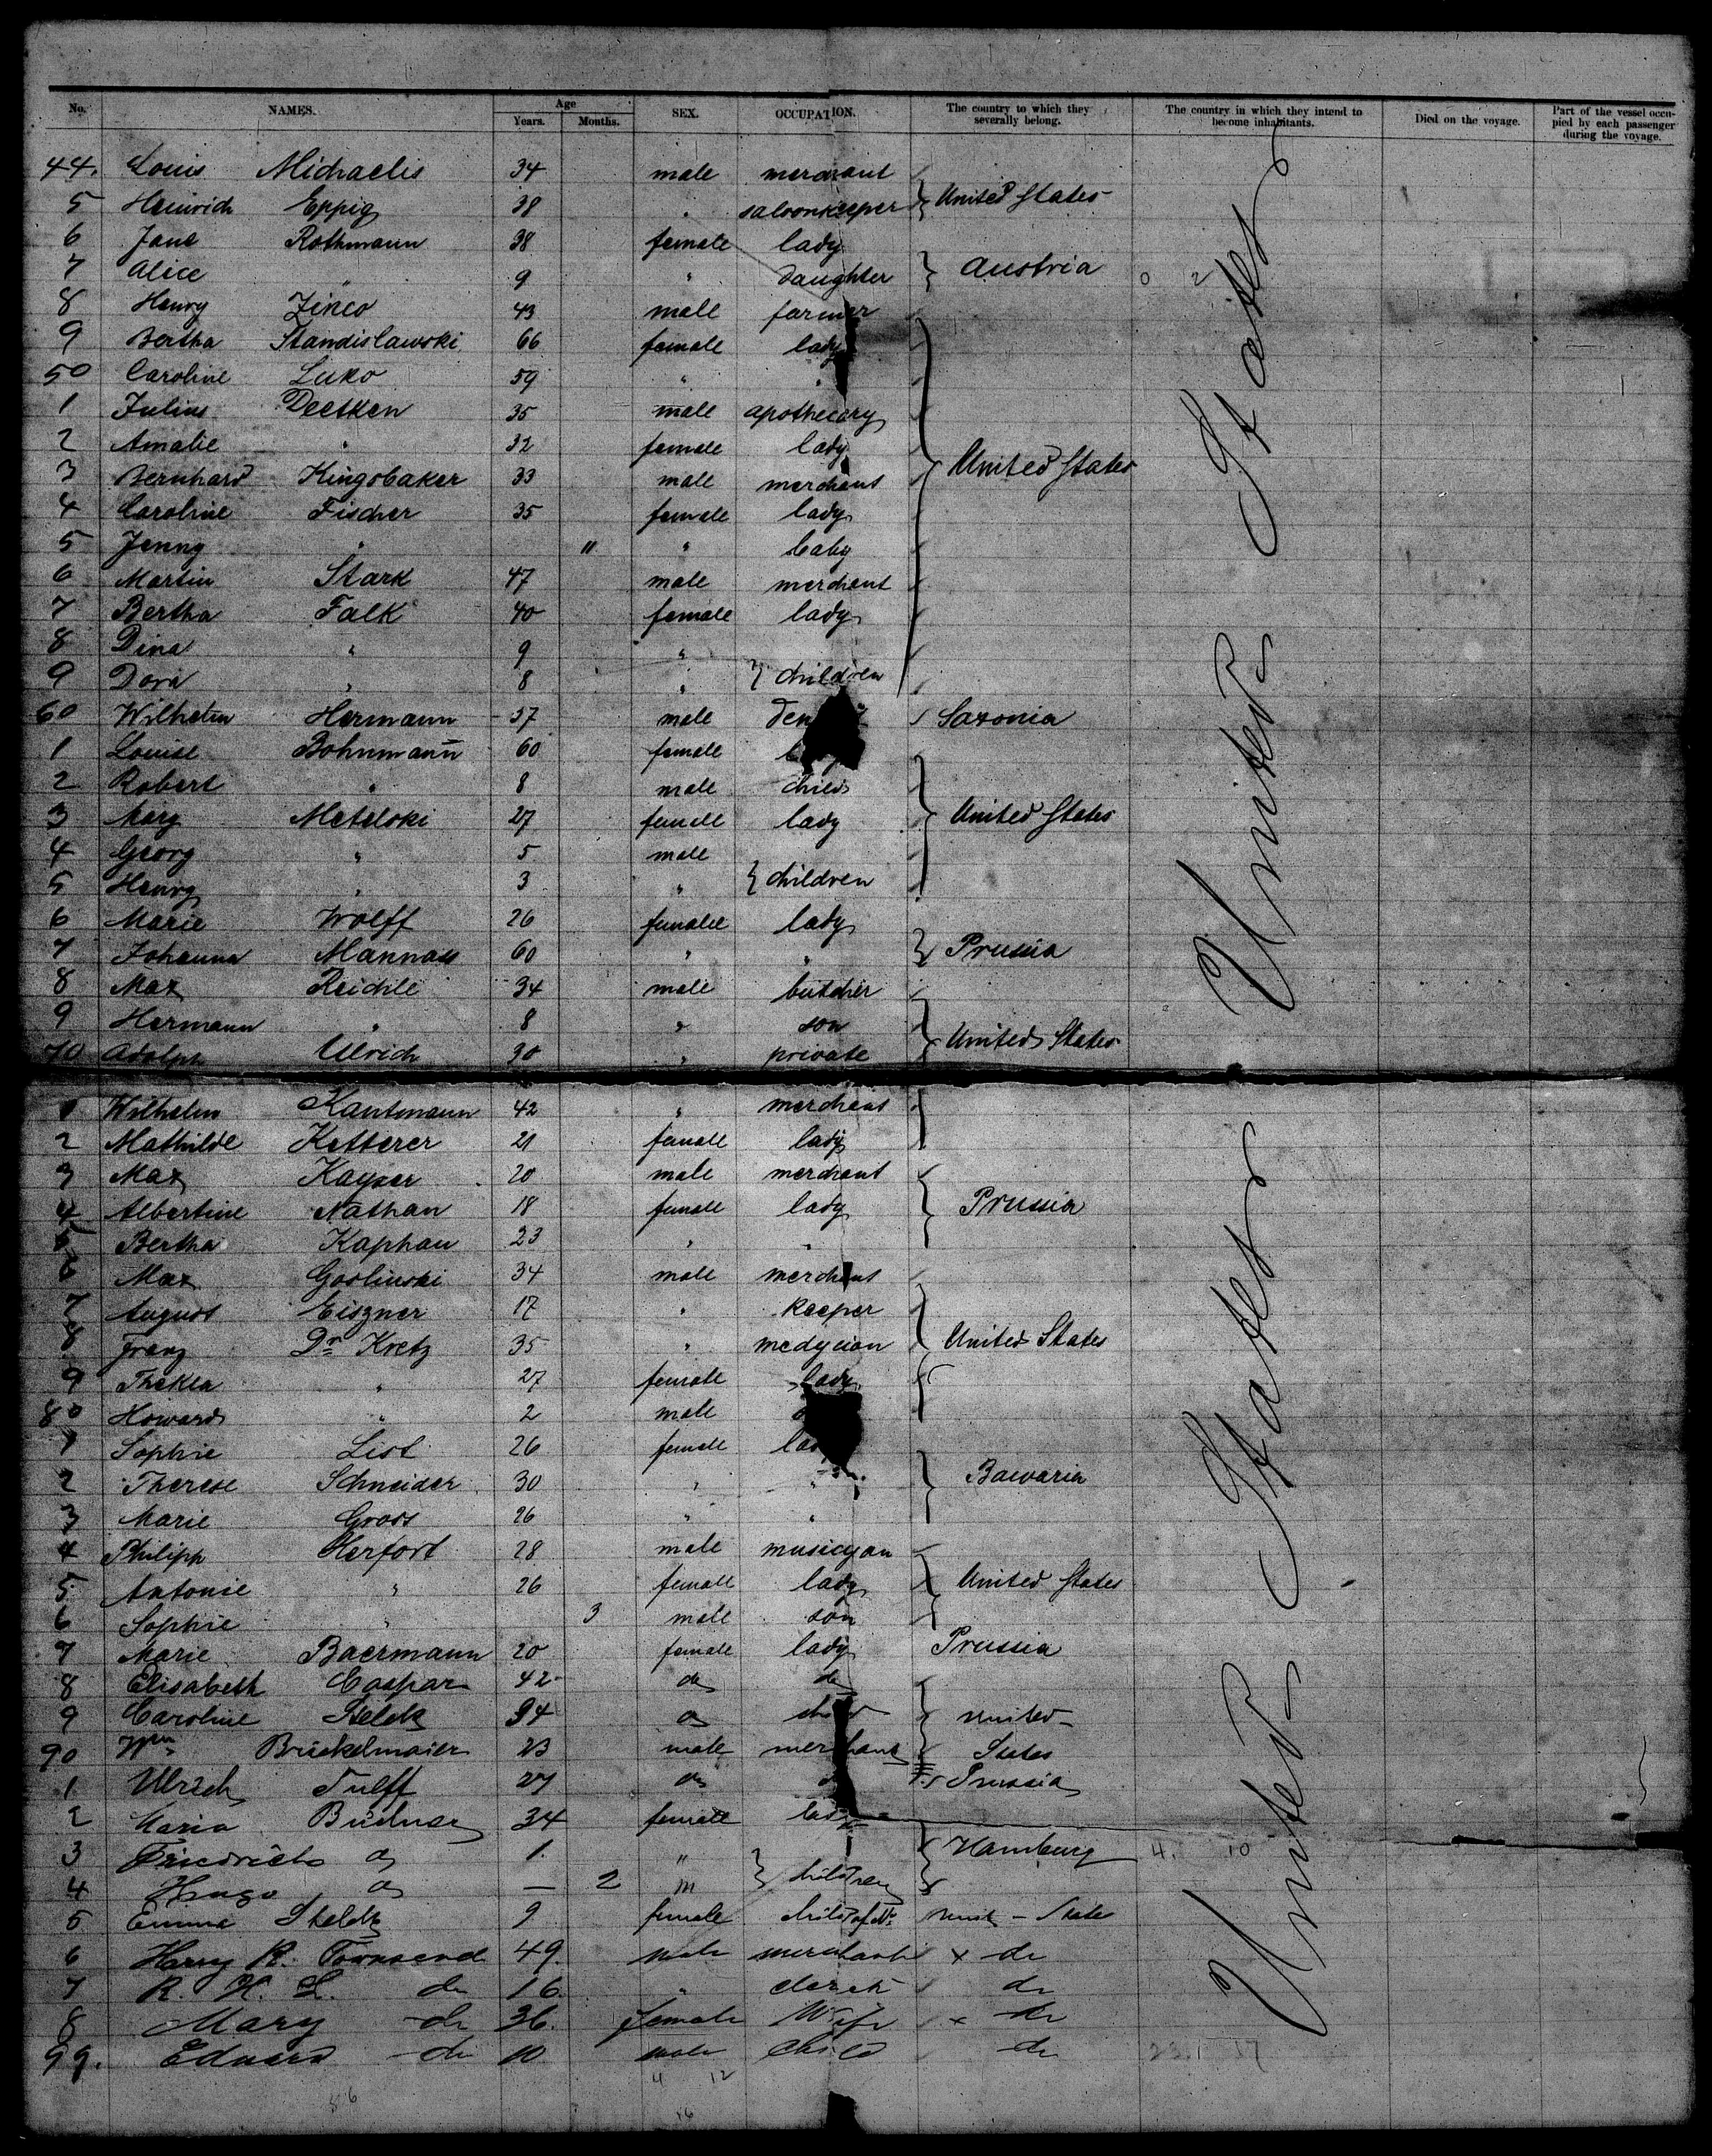 No. NAMES. Age Years. Months. SEX. OCCUPATION. The country to which they severally belong. The country in which they intend to become inhabitants. Died on the voyage. Part of the vessel occupied by each passenger during the voyage.
44. Louis Michaelis 34 male merchant
5 Heinrich Eppig 38 " saloonkeeper } United States
6 Jane Rothmann 38 female lady
7 Alice " 9 " daughter } Austria
8 Henry Zinco 43 male farmer
9 Bertha Standislawski 66 female lady
50 Caroline Luko 59 " "
1 Julius Deetken 35 male apothecary
2 Amalie " 32 female lady
3 Bernhard Kingobaker 33 male merchant } United States
4 Caroline Fischer 35 female lady
5 Jenny " 11 " baby
6 Martin Stark 47 male merchant
7 Bertha Falk 40 female lady
8 Dina " 9 "
9 Dora " 8 " } children
60 Wilhelm Hermann 37 male Saxonia
1 Louise Bohnmann 60 female
2 Robert " 8 male child
3 Mary Metelski 27 female lady } United States
4 Georg " 5 male
5 Henry " 3 " } children
6 Marie Wolff 26 female lady
7 Johanna Mannass 60 " " } Prussia
8 Max Reichle 34 male butcher
9 Hermann " 8 " son
70 Adolph Ulrich 30 " private } United States
1 Wilhelm Kantmann 42 " merchant
2 Mathilde Ketterer 21 female lady
3 Max Kayser 20 male merchant
4 Albertine Nathan 18 female lady } Prussia
5 Bertha Kaphan 23 " "
6 Max Goslinski 34 male merchant
7 August Eiszner 17 " keeper
8 Franz Dr Kretz 35 " medycion } United States
9 Thekla " 27 female lady
80 Howard " 2 male
1 Sophie List 26 female lady
2 Therese Schneider 30 " " } Bawaria
3 Marie Gross 26 " "
4 Philipp Herfort 28 male musicyan
5 Antonie " 26 female lady } United States
6 Sophie " 3 male son
7 Marie Baermann 20 female lady Prussia
8 Elisabeth Caspar 42 do do
9 Caroline Stelck 34 do } United
90 Wm Brückelmaier 23 male merchant States
1 Ulrich Tulff 27 do Prussia
2 Maria Büchner 34 female lady
3 Friedrich do 1. " } Hamburg
4 Hugo do — 2 " } children
5 Emma Stelck 9 female child of Unit – State
6 Harry R. Townsend 49. male merchant x do
7 R. H. L. do 16. " clerk do
8 Mary do 36. female Wife x do
99. Eduard do 10 male child do
United States
United States